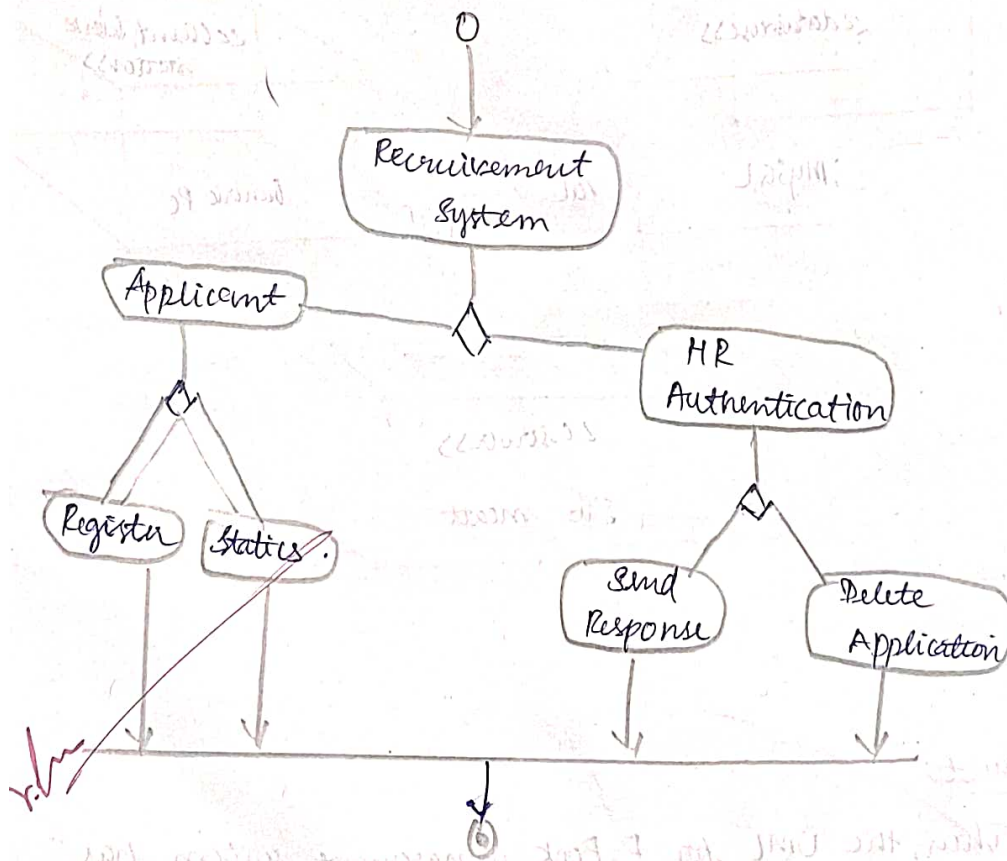 Recruivement
System
Applicant
HR
Authentication
Register
Statics.
Send
Response
Delete
Application